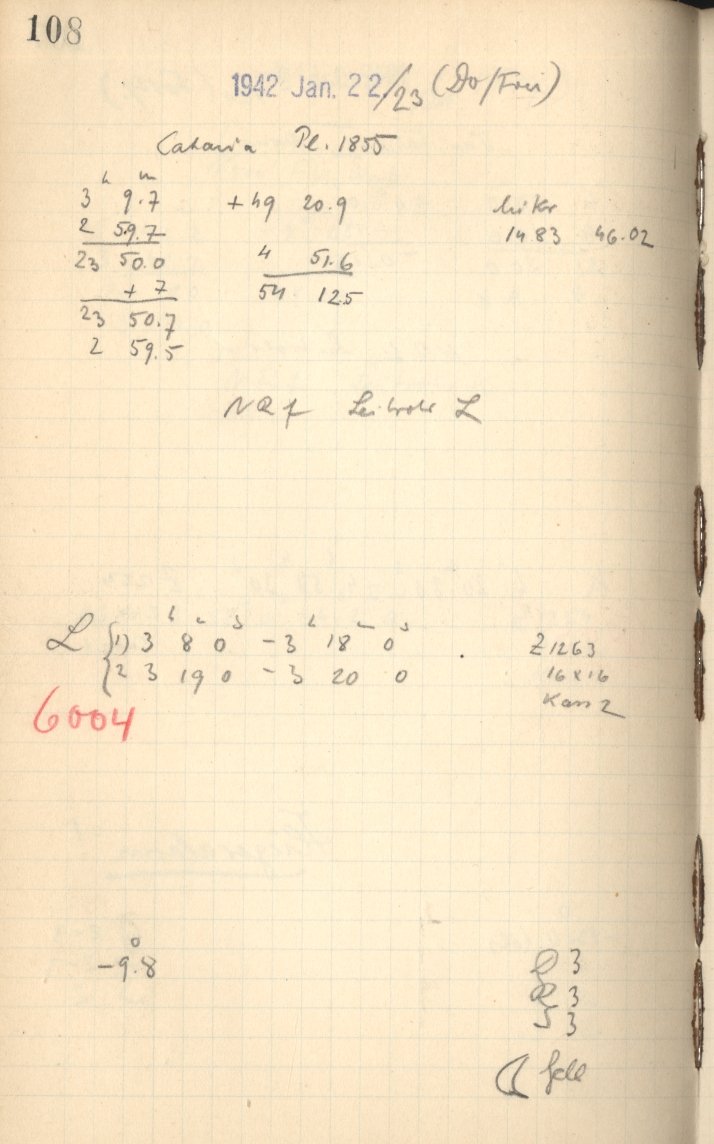 108
1942 Jan. 22/23 (Do/Frei)
Catania Pl. 1855
h m
3 9.7 +49 20.9 Mikr
2 59.7 14.83 46.02
23 50.0 4 51.6
+ 7 54 12.5
23 50.7
2 59.5
Leitrohr L
h m s h m s
L {1) 3 8 0 - 3 18 0 Z 1263
{2 3 19 0 - 3 20 0 16 x 16
6004 Kass 2
-9.8°
3
R 3
S 3
hell